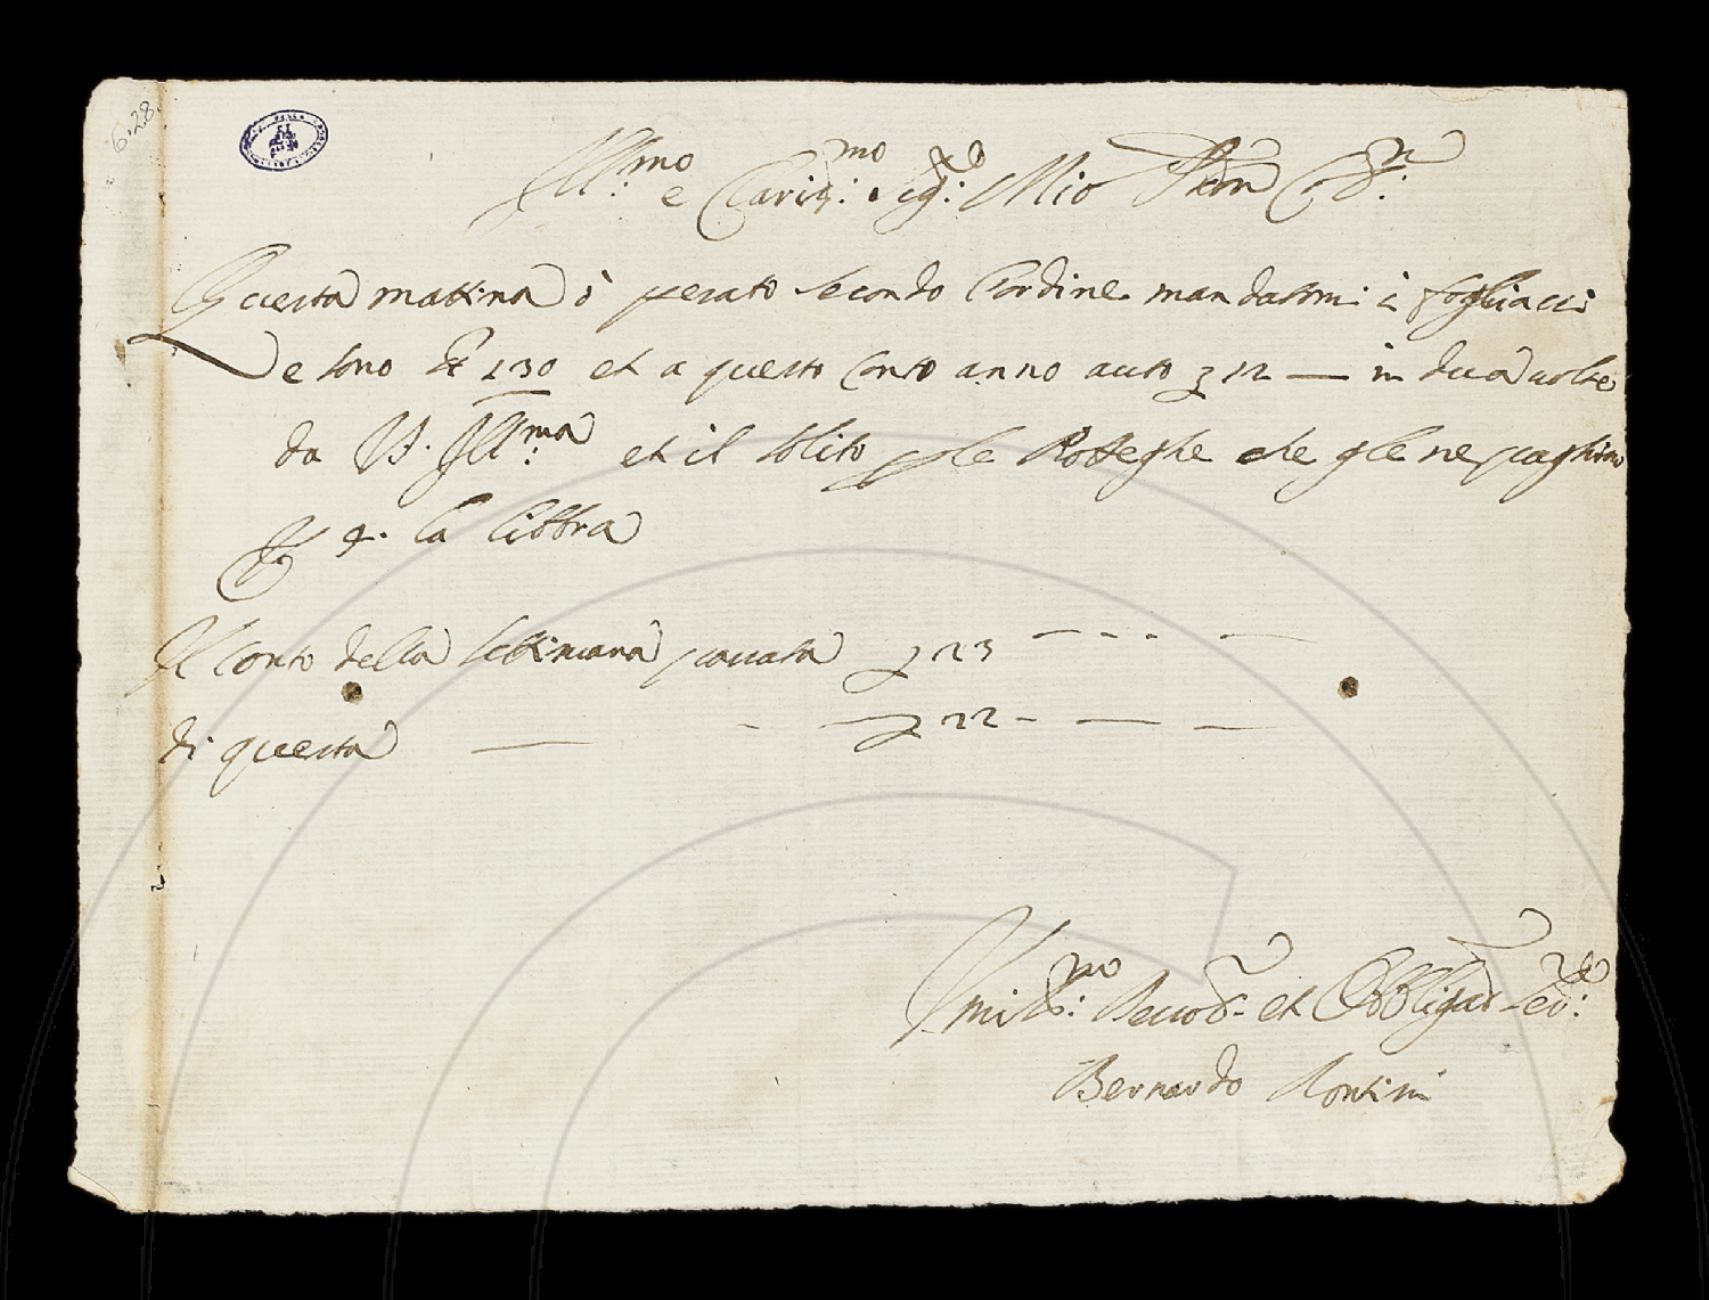 6.28
Ill:mo e Claris:mo Sig:re Mio Pron C:
Questa mattina ò pesato secondo l'ordine mandatomi i fogliacci
e sono 130 et a questo conto anno auto 12 — in dua uolte
da V.S. Ill:ma et il solito p le Botteghe che gle ne paghino
4. la libbra
Il conto della settimana passata 23 - - - -
di questa — - — 22 - — —
Umiliss:mo et Obbligat Ser:re
Bernardo Rontini